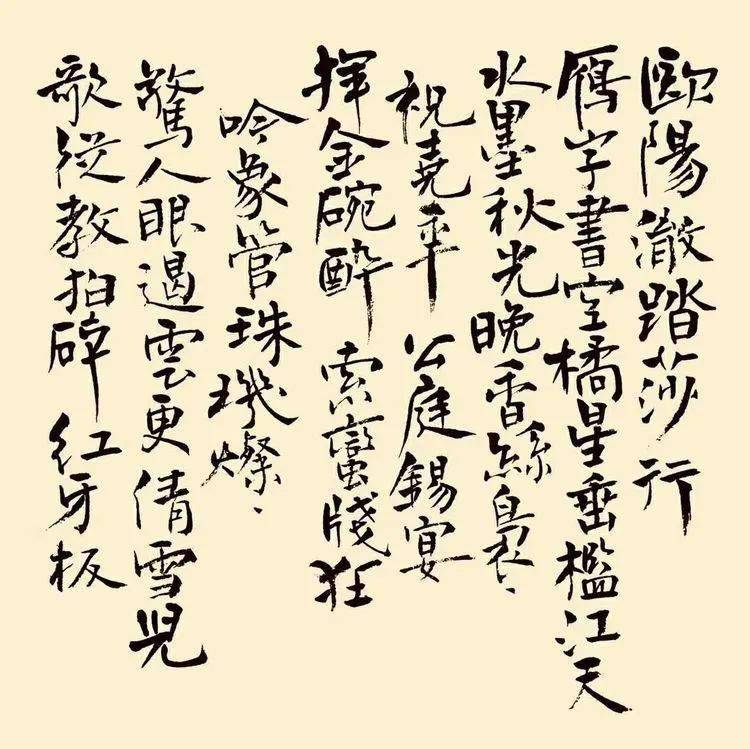 歐陽澈踏莎行
鴈字書空橘星垂檻江天
水墨秋光晚香絲裊、
祝堯年公庭錫宴
揮金碗酔索蠻牋狂
吟象管珠璣燦、
驚人眼遏雲更倩雪兒
歌從教拍碎紅牙板